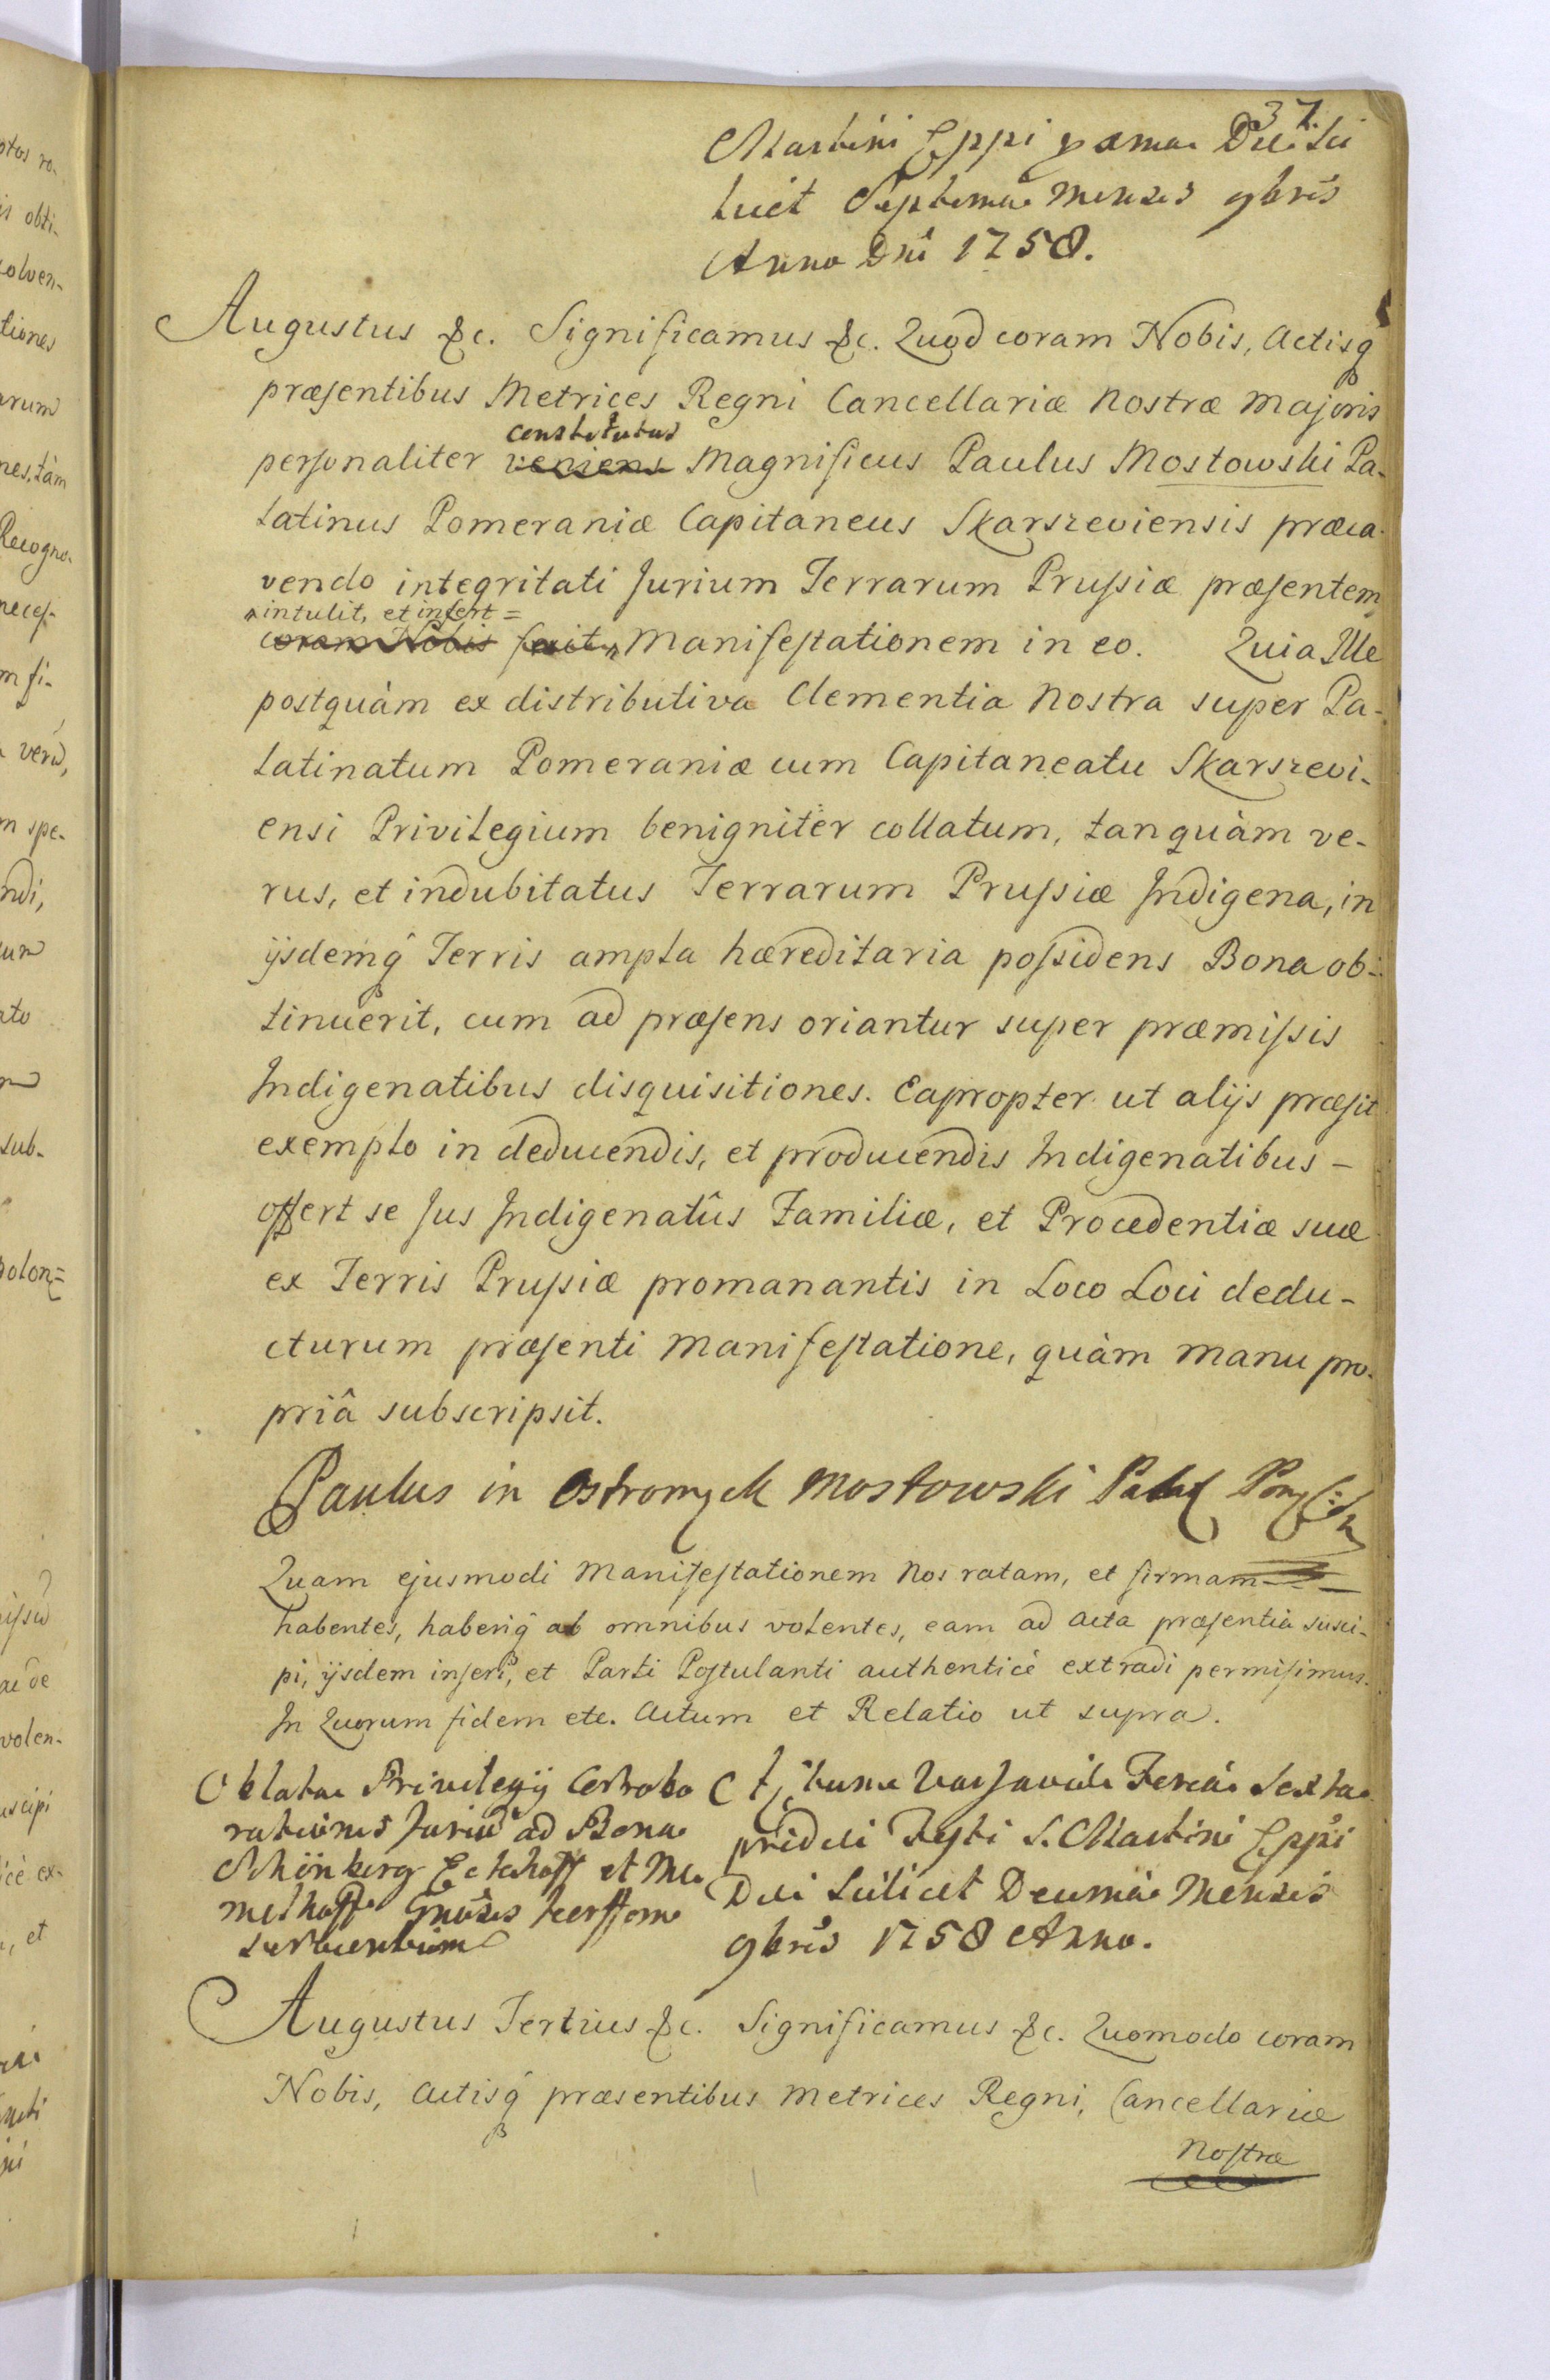 37.
Martini Eppi
Septima mensis 9bris
Anno Dni 1758.
Augustus &c. Significamus &c. Quod coram Nobis, Actisq
præsentibus Metrices Regni Cancellariæ Nostræ Majoris
constitutus
personaliter veniens Magnificus Paulus Mostowski Pa-
latinus Pomeraniæ Capitaneus Skarszeviensis præca-
vendo integritati Jurium Terrarum Prussiæ præsentem
intulit, et infert =
coram Nobis fecit Manifestationem in eo. Quia Ille
postquàm ex distributiva Clementia Nostra super Pa-
latinatum Pomeraniæ cum Capitaneatu Skarszevi-
ensi Privilegium benignitèr collatum, tanquàm ve-
rus, et indubitatus Terrarum Prussiæ Indigena, in
ijsdemq Terris ampla hæreditaria possidens Bona ob-
tinuerit, cum ad præsens oriantur super præmissis
Indigenatibus disquisitiones. Eapropter ut alijs præsit
exemplo in deducendis, et producendis Indigenatibus -
offert se Jus Indigenatûs Familiæ, et Procedentiæ suæ
ex Terris Prussiæ promanantis in Loco Loci dedu-
cturum præsenti Manifestatione, quàm manu pro-
priâ subscripsit.
Paulus in Mostowski
Quam ejusmodi Manifestationem Nos ratam, et firmam
habentes, haberiq ab omnibus volentes, eam ad Acta præsentia susci-
pi, ijsdem inseri, et Parti Postulanti authenticè extradi permisimus.
In Quorum fidem etc. Actum et Relatio ut supra.
Oblatae Privilegij Corrobo
rationis Jurium ad Bona
Schönberg et Me
servientium
Varsaviæ Feria Sexta
pridie Festi S. Martini Eppi
Die Scilicet Decima Mensis
9bris 1758 Anno.
Augustus Tertius &c. Significamus &c. Quomodo coram
Nobis, Actisq præsentibus Metrices Regni, Cancellariæ
Nostræ